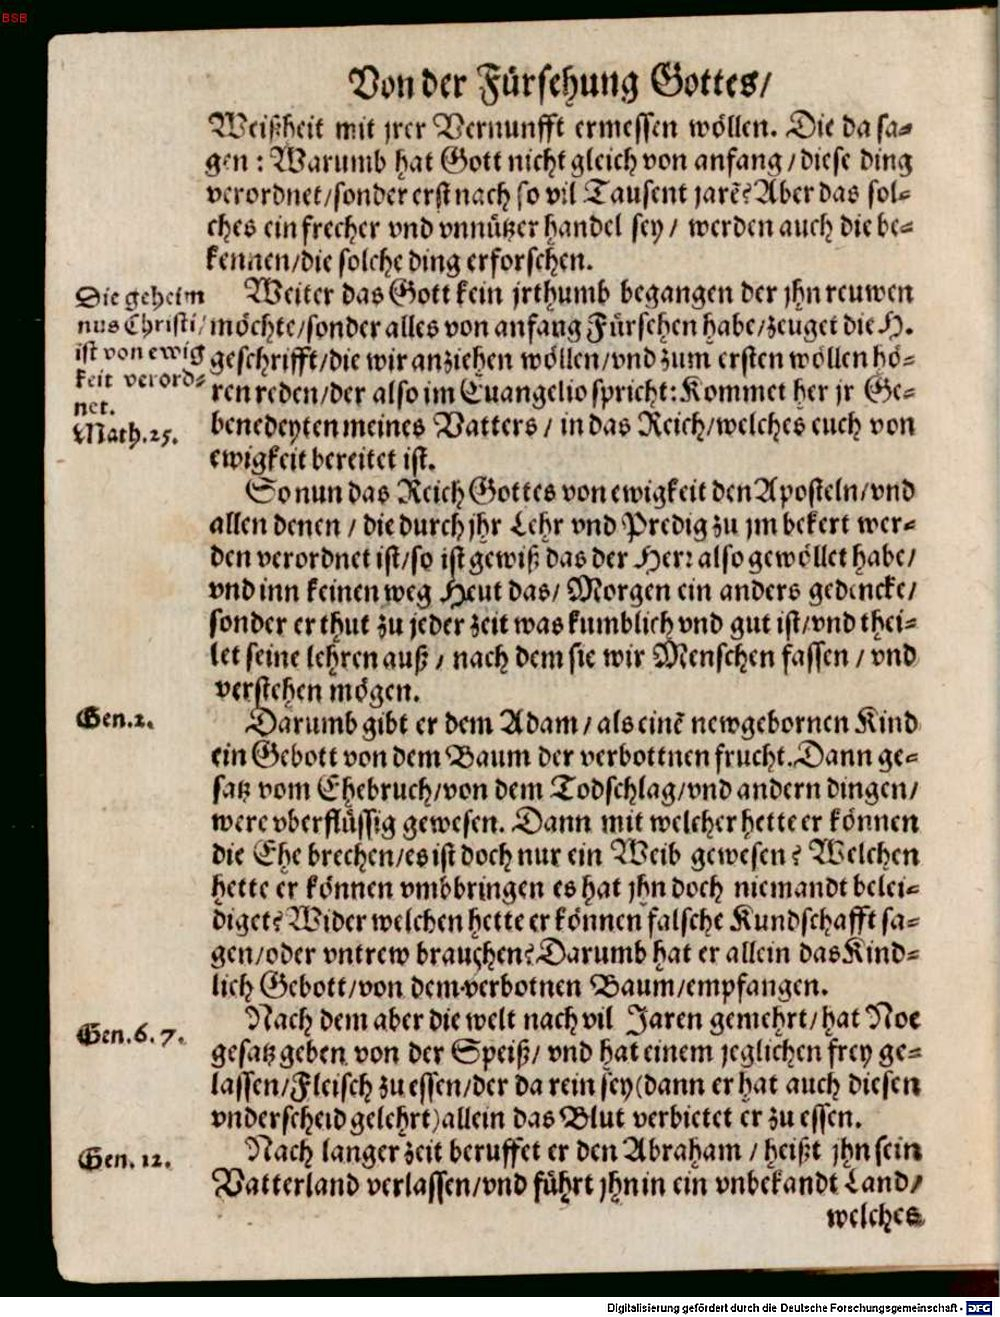 BSB
Von der Fürsehung Gottes/
Weißheit mit jrer Vernunfft ermessen wöllen. Die da sa-
gen: Warumb hat Gott nicht gleich von anfang/diese ding
verordnet/sonder erst nach so vil Tausent jarẽ? Aber das sol-
ches ein frecher vnd vnnützer handel sey/ werden auch die be-
kennen/die solche ding erforschen.
Die geheim
nus Christi/
ist von ewig
keit verord-
net.
Math.25.
Weiter das Gott kein jrthumb begangen der jhn reuwen
möchte/sonder alles von anfang Fürsehen habe/zeuget die H.
geschrifft/die wir anziehen wöllen/vnd zum ersten wöllen hö-
ren reden/der also im Euangelio spricht: Kommet her jr Ge-
benedeyten meines Vatters/ in das Reich/welches euch von
ewigkeit bereitet ist.
So nun das Reich Gottes von ewigkeit den Aposteln/vnd
allen denen/ die durch jhr Lehr vnd Predig zu jm bekert wer-
den verordnet ist/so ist gewiß das der Herr also gewöllet habe/
vnd inn keinen weg Heut das/ Morgen ein anders gedencke/
sonder er thut zu jeder zeit was kumblich vnd gut ist/vnd thei-
let seine lehren auß/ nach dem sie wir Menschen fassen/ vnd
verstehen mögen.
Gen.2.
Darumb gibt er dem Adam/ als einẽ newgebornen Kind
ein Gebott von dem Baum der verbottnen frucht. Dann ge-
satz vom Ehebruch/von dem Todschlag/vnd andern dingen/
were vberflüssig gewesen. Dann mit welcher hette er können
die Ehe brechen/es ist doch nur ein Weib gewesen? Welchen
hette er können vmbbringen es hat jhn doch niemandt belei-
diget? Wider welchen hette er können falsche Kundschafft sa-
gen/oder vntrew brauchen? Darumb hat er allein das Kind-
lich Gebott/von dem verbotnen Baum/empfangen.
Gen.6.7.
Nach dem aber die welt nach vil Jaren gemehrt/hat Noe
gesatz geben von der Speiß/ vnd hat einem jeglichen frey ge-
lassen/Fleisch zu essen/der da rein sey(dann er hat auch diesen
vnderscheid gelehrt)allein das Blut verbietet er zu essen.
Gen. 12.
Nach langer zeit beruffet er den Abraham/ heißt jhn sein
Vatterland verlassen/vnd führt jhn in ein vnbekandt Land/
welches
Digitalisierung gefördert durch die Deutsche Forschungsgemeinschaft - DFG